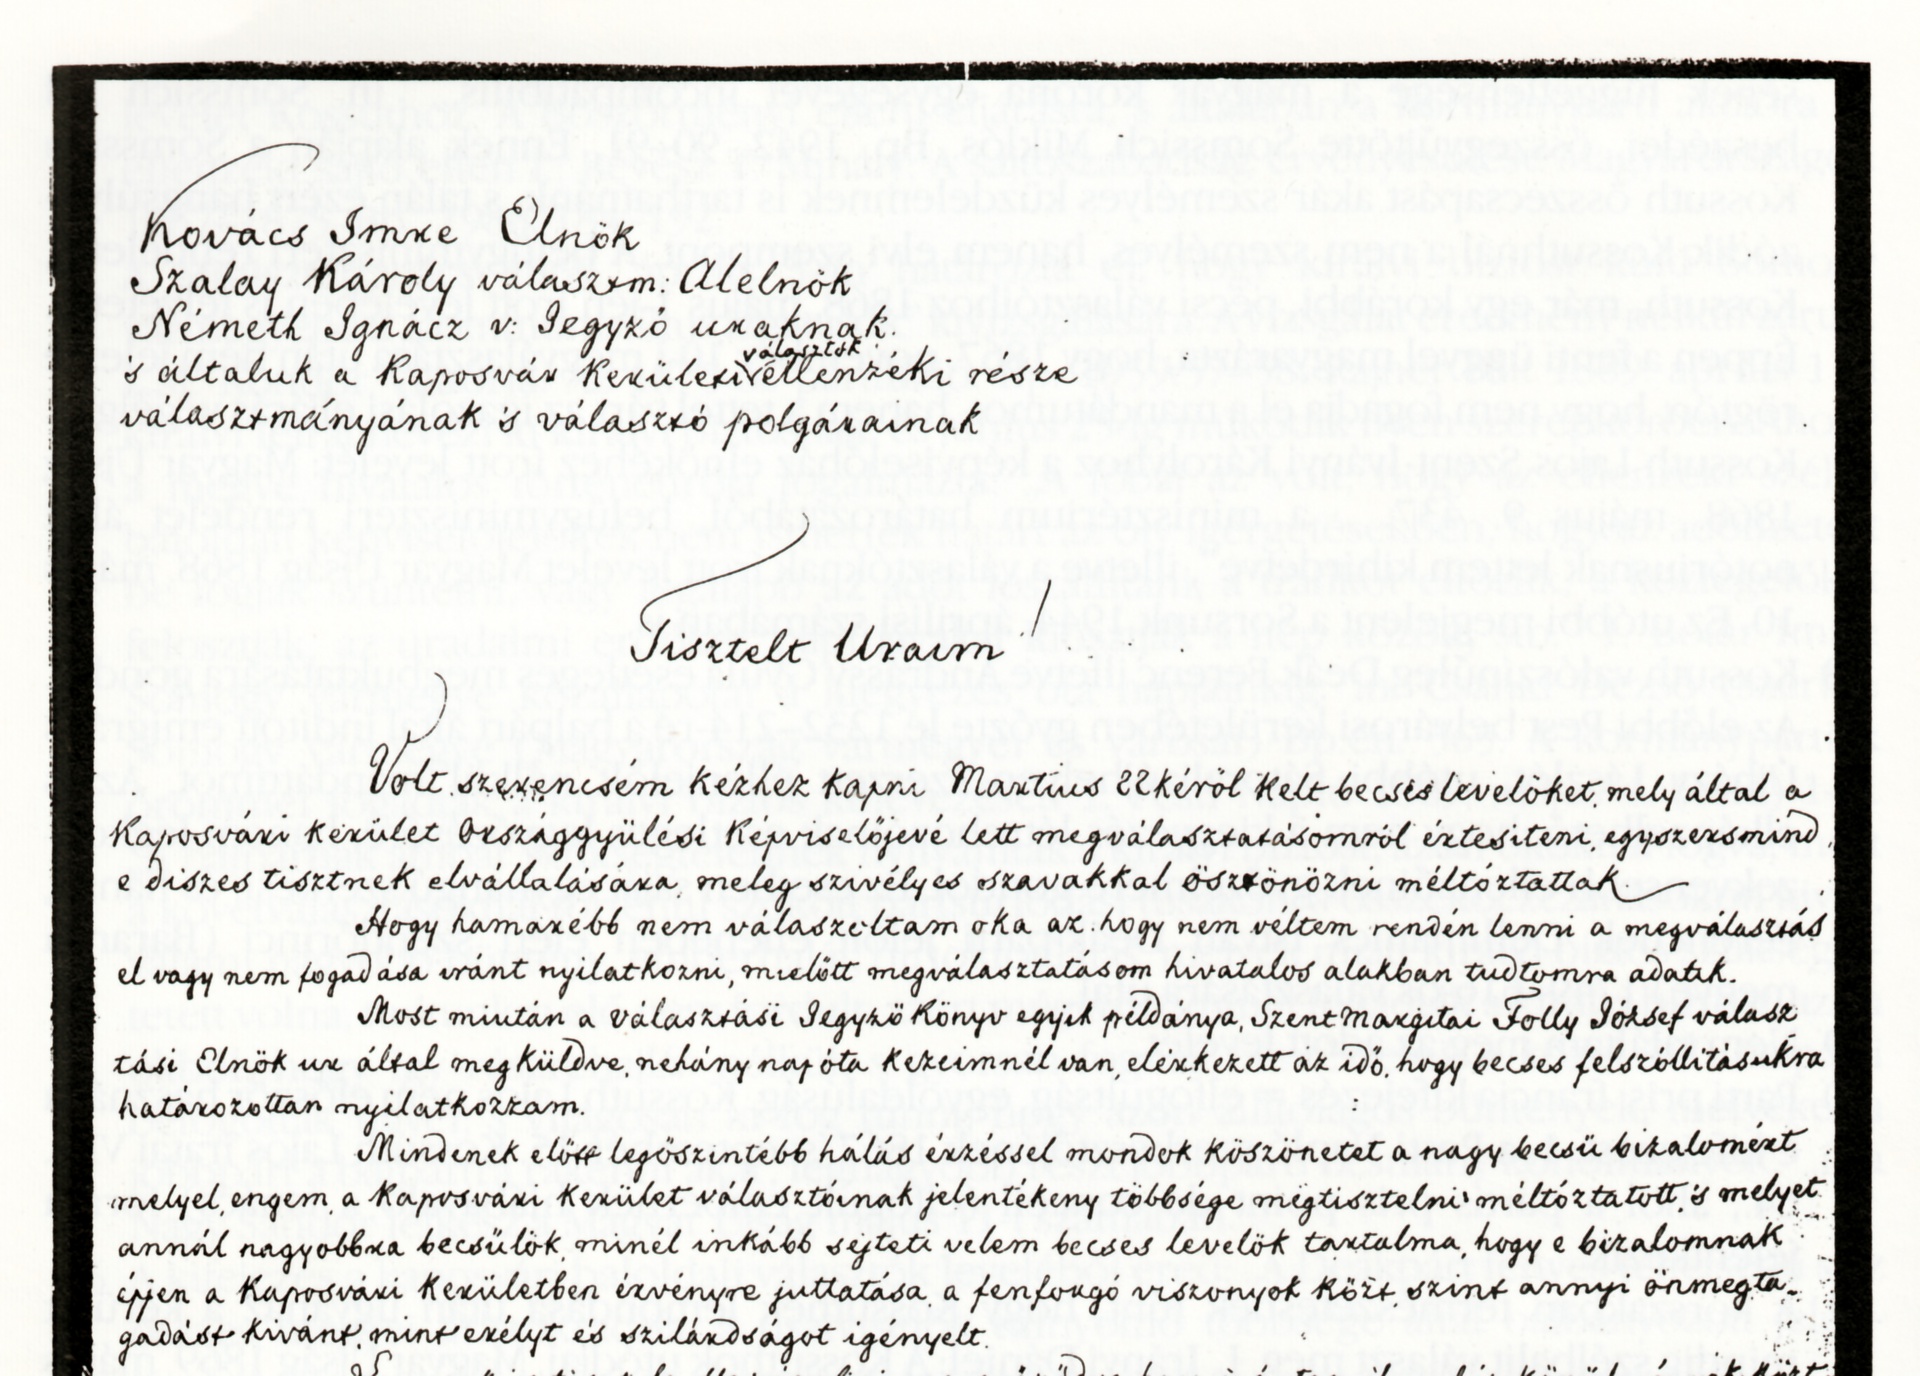 Kovács Imre Elnök
Szalay Károly választm: Alelnök
Németh Ignácz v: Jegyző uraknak.
's általuk a Kaposvár kerületi választók ellenzéki része
választmányának 's választó polgárainak
Tisztelt Uraim!
Volt szerencsém kézhez kapni Martius 22kéről kelt becses levelöket, mely által a
Kaposvári kerület Országgyülési Képviselőjevé lett megválasztatásomról értesiteni, egyszersmind
e diszes tisztnek elvállalására, meleg szivélyes szavakkal ösztönözni méltóztattak.
Hogy hamarébb nem válaszoltam oka az, hogy nem véltem rendén lenni a megválasztás
el vagy nem fogadása iránt nyilatkozni, mielőtt megválasztatásom hivatalos alakban tudtomra adatik.
Most miután a választási Jegyző Könyv egyik példánya, Szent Margitai Folly József válasz
tási Elnök ur által megküldve, nehány nap óta kezeimnél van, elérkezett az idő, hogy becses felszóllitásukra
határozottan nyilatkozzam.
Mindenek előtt legöszintébb hálás érzéssel mondok köszönetet a nagy becsü bizalomért
melyel, engem, a Kaposvári kerület választóinak jelentékeny többsége megtisztelni méltóztatott, 's melyet
annál nagyobbra becsülök, minél inkább sejteti velem becses levelök tartalma, hogy e bizalomnak
épjen a Kaposvári kerületben érvényre juttatása, a fenforgó viszonyok közt, szint annyi önmegta-
gadást kivánt, mint erélyt és szilárdságot igényelt.